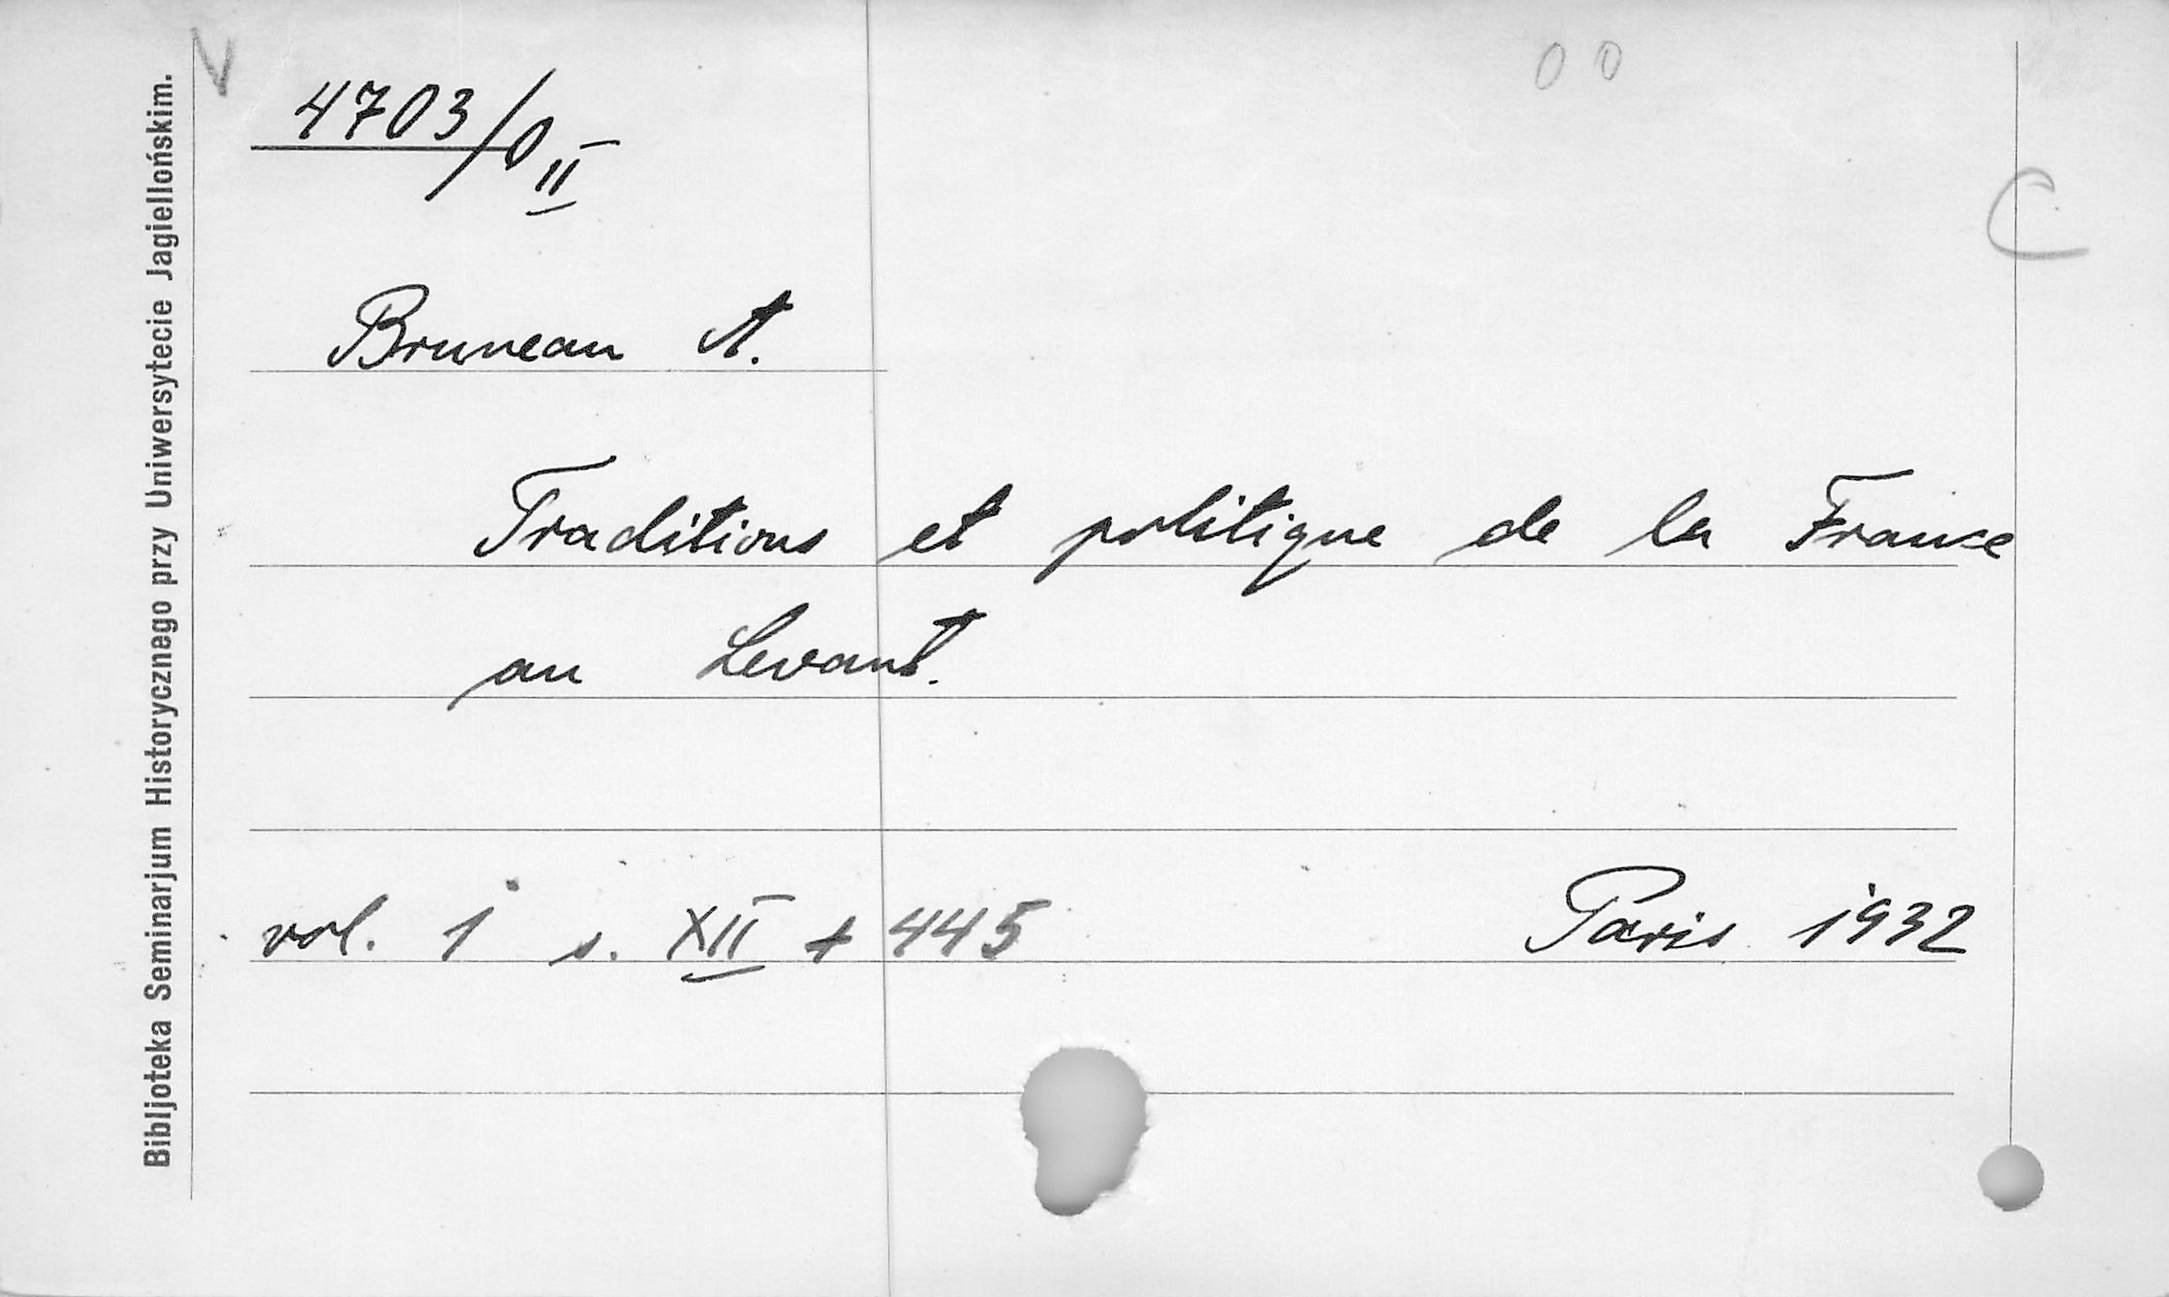 V
4703/0 II
0 0
C
Bruneau A.
Traditions et politique de la France
au Levant.
vol. 1 s. XII + 445 Paris 1932
Bibljoteka Seminarjum Historycznego przy Uniwersytecie Jagiellońskim.